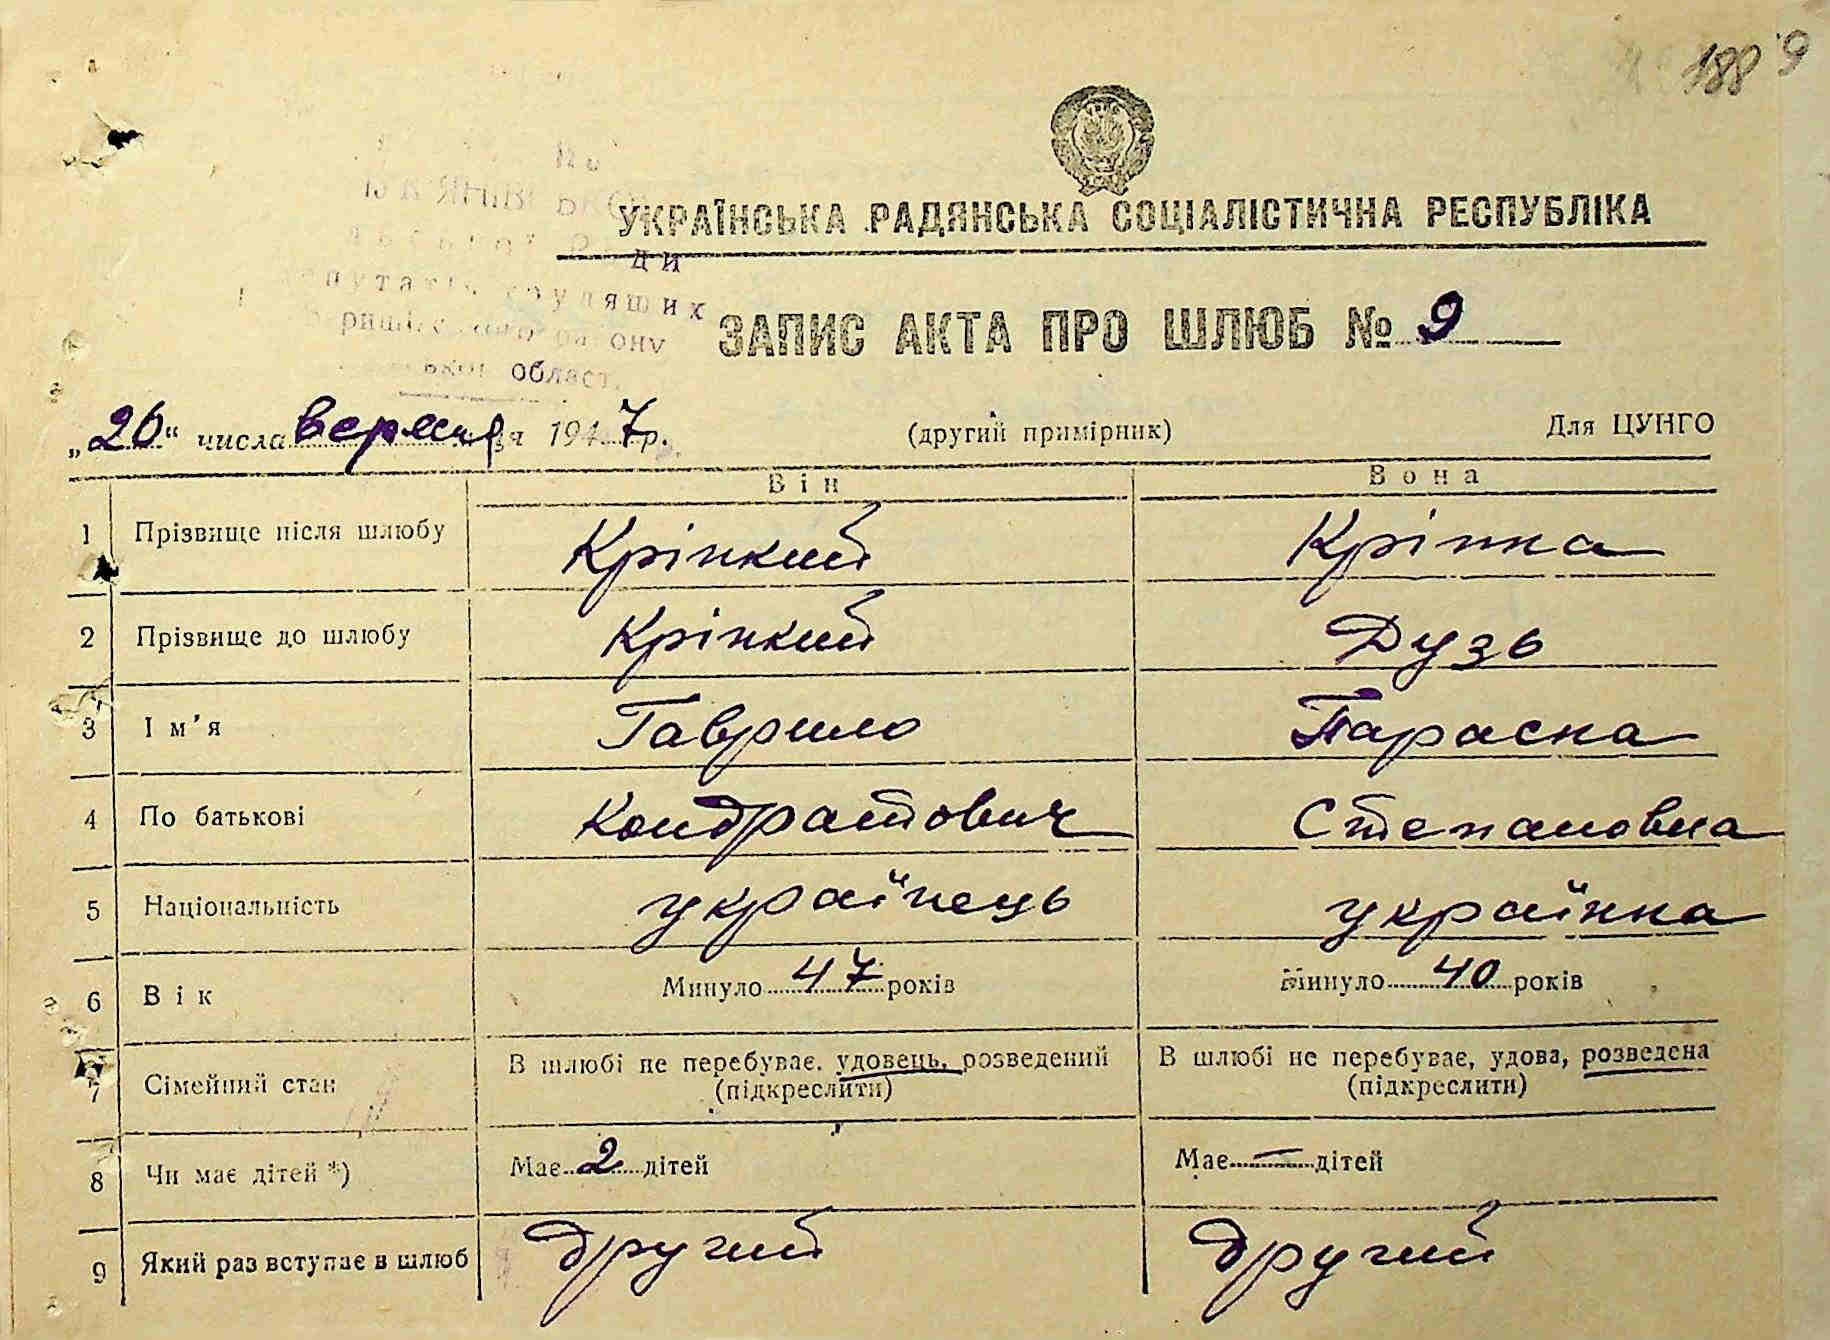 188 9
УКРАЇНСЬКА РАДЯНСЬКА СОЦІАЛІСТИЧНА РЕСПУБЛІКА
ди
трудящих
району
області
ЗАПИС АКТА ПРО ШЛЮБ № 9
„26“ числа вересня 1947 р. (другий примірник) Для ЦУНГО
Він Вона
1 Прізвище після шлюбу Кріпкий Кріпка
2 Прізвище до шлюбу Кріпкий Дузь
3 Ім'я Гаврило Параска
4 По батькові Кондратович Степановна
5 Національність українець українка
6 Вік Минуло 47 років Минуло 40 років
7 Сімейний стан В шлюбі не перебуває, удовець, розведений (підкреслити) В шлюбі не перебуває, удова, розведена (підкреслити)
8 Чи має дітей *) Має 2 дітей Має — дітей
9 Який раз вступає в шлюб другий другий